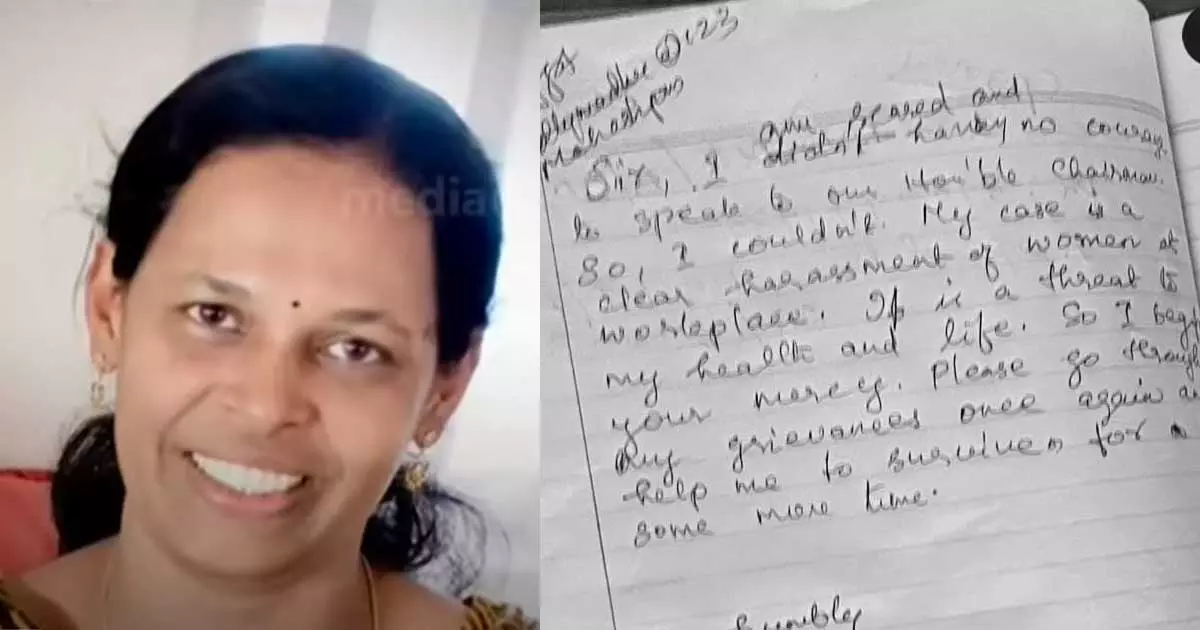 media
123
am scared and
Sir, I having no courag
to speak to our Hon'ble Chairman.
So, I couldn't. My case is a
clear harassment of women at
workplace. It is a threat to
my health and life. So I beg
your mercy. Please go through
my grievances once again a
help me to for
some more time.
Humbly